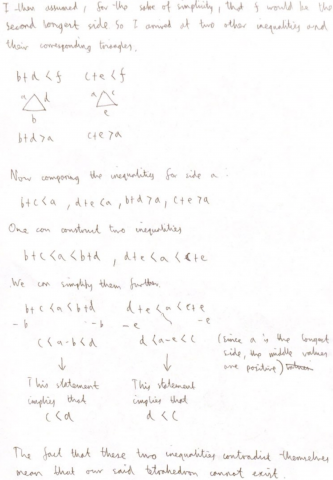 I then assumed, for the sake of simplicity, that f would be the
second longest side so I arrived at two other inequalities and
their corresponding triangles.
b+d < f   c+e < f
a d   a c
b   e
b+d > a   c+e > a
Now comparing the inequalities for side a :
b+c < a , d+e < a , b+d > a , c+e > a
One can construct two inequalities
b+c < a < b+d , d+e < a < c+e
We can simplify them further.
b+c < a < b+d   d+e < a < c+e
-b   -b   -e   -e
c < a-b < d   d < a-e < c   (since a is the longest
side, the middle values
are positive)
This statement   This statement
implies that   implies that
c < d   d < c
The fact that these two inequalities contradict themselves
mean that our said tetrahedron cannot exist.